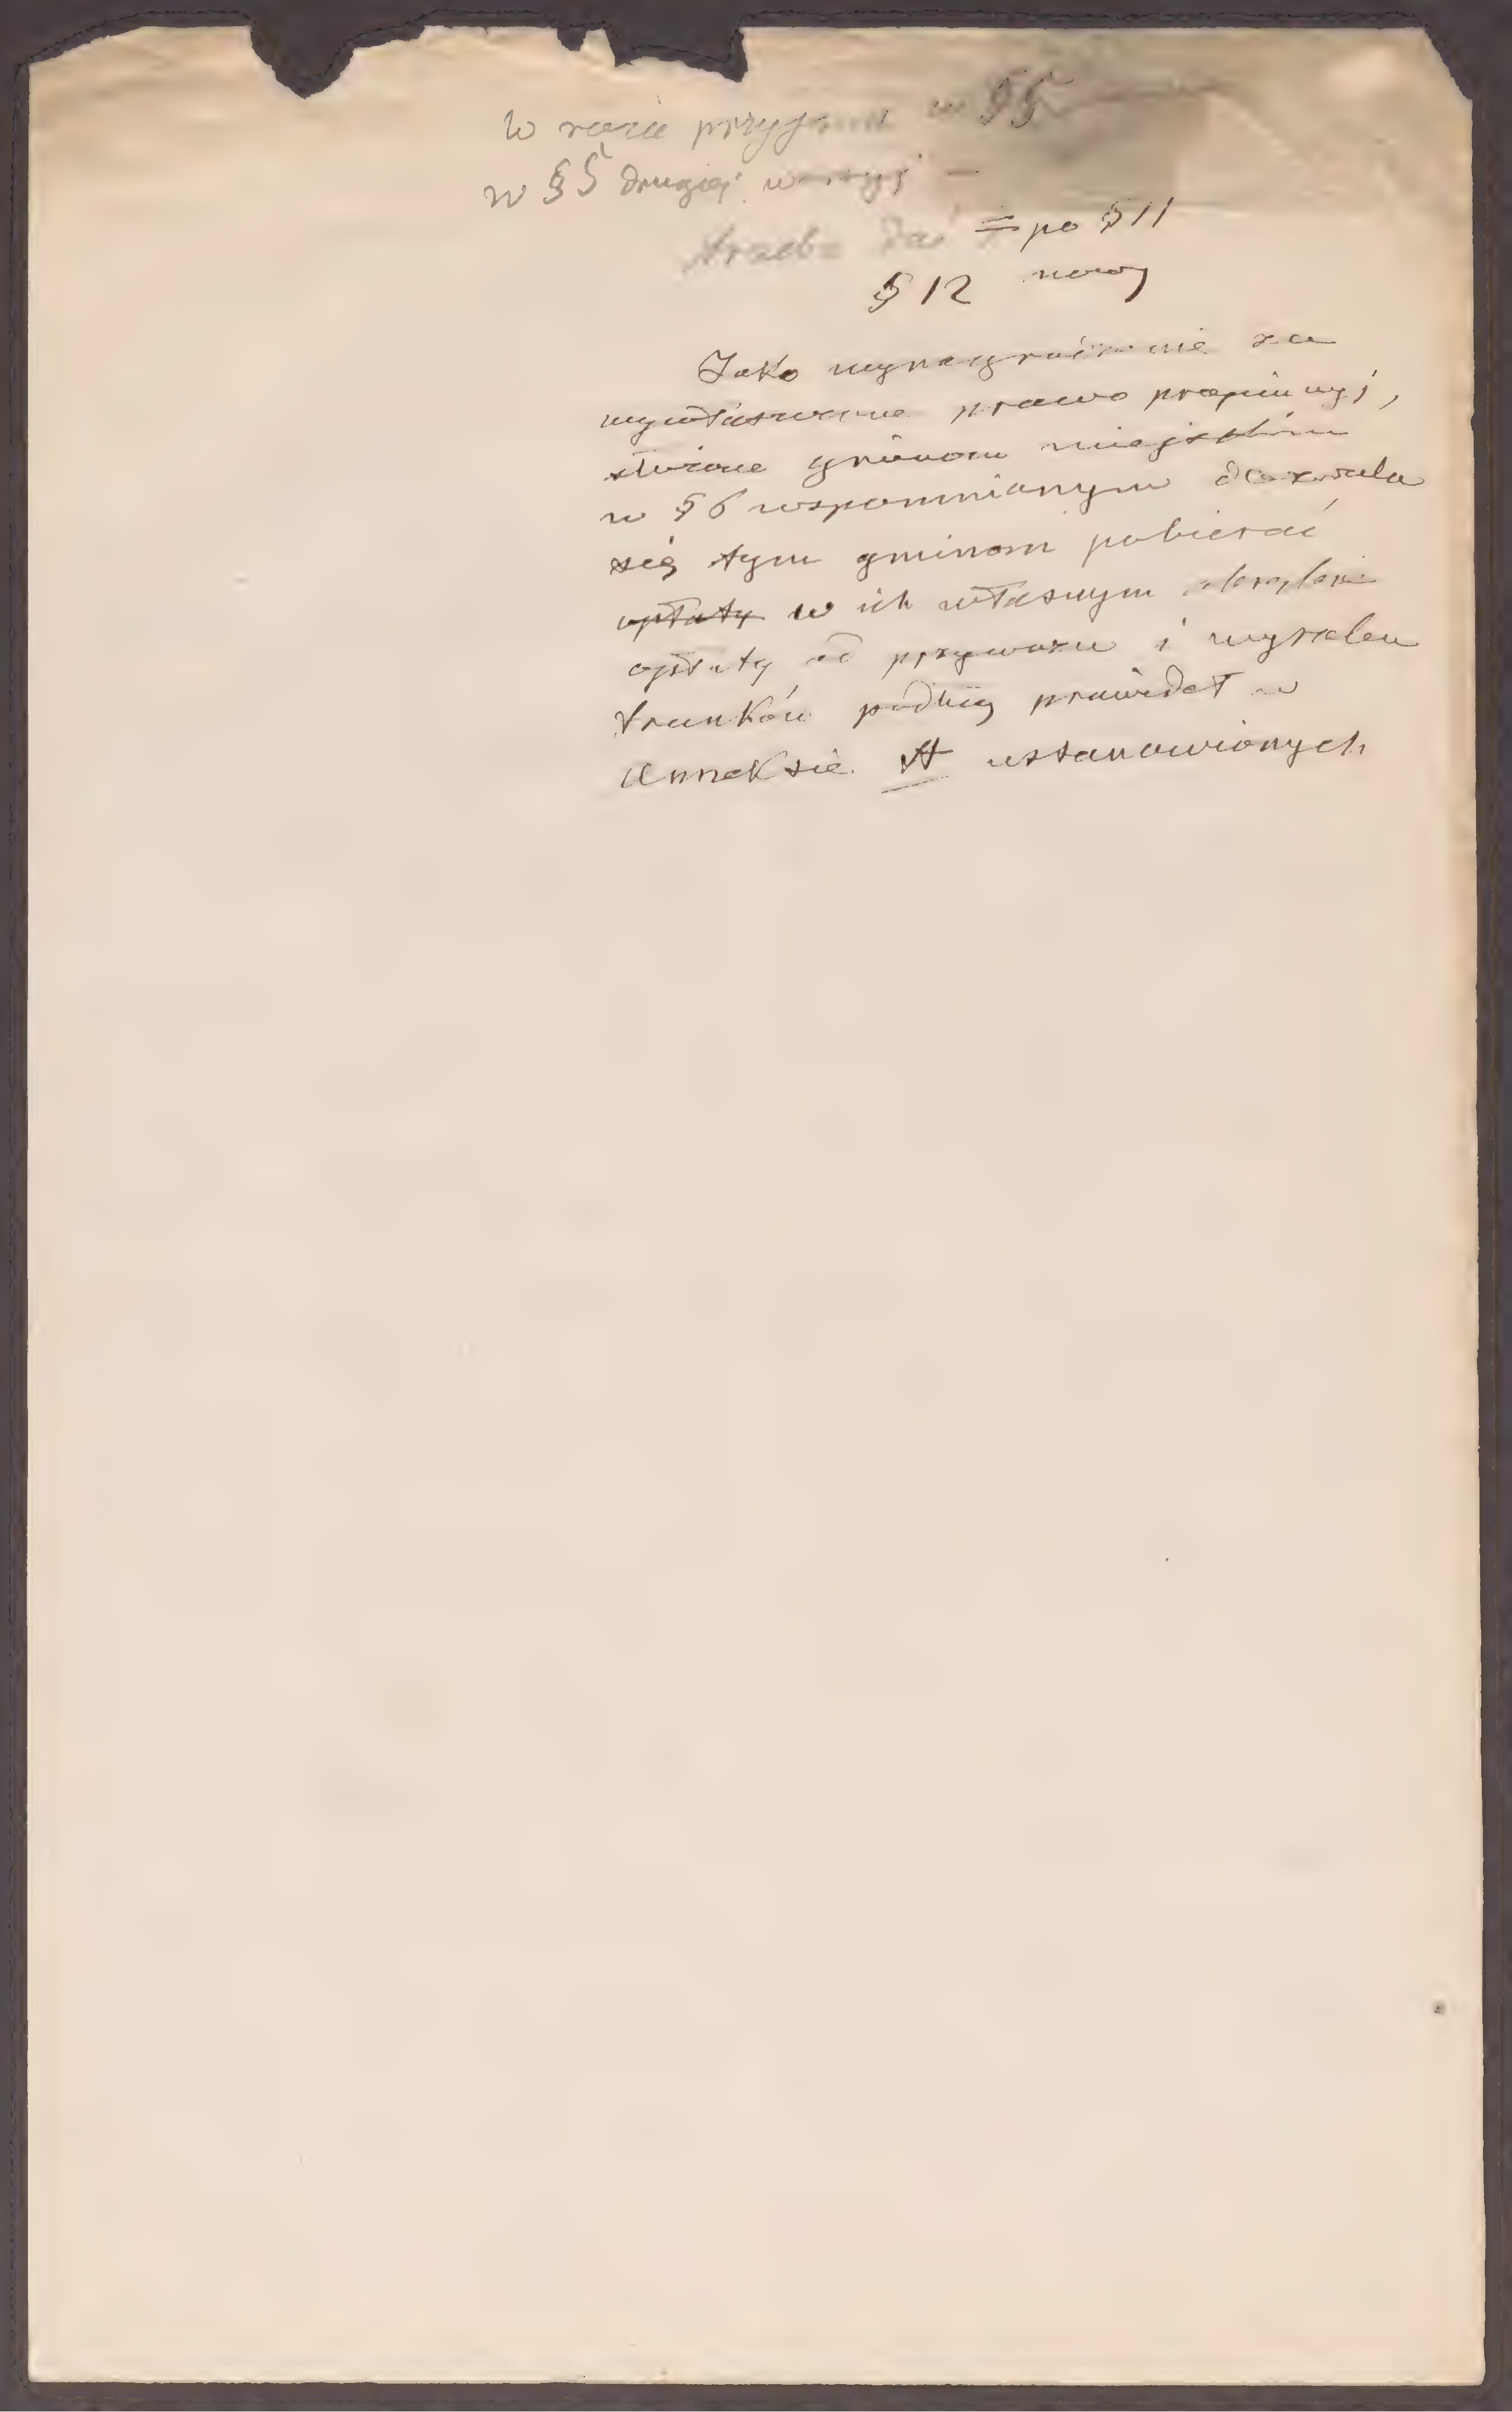 w razie przyjęcia w §5
w §5 drugiej wersyj —
trzeba dać = po §11
§ 12 nowy
Jako wynagrodzenie za
wywłaszczone prawo propinacyj,
służące gminom miejskim
w §6 wspomnianym dozwala
się tym gminom pobierać
opłaty w ich własnym obrębie
opłaty od przywozu i wyrobu
trunków podług prawideł w
anneksie A ustanowionych